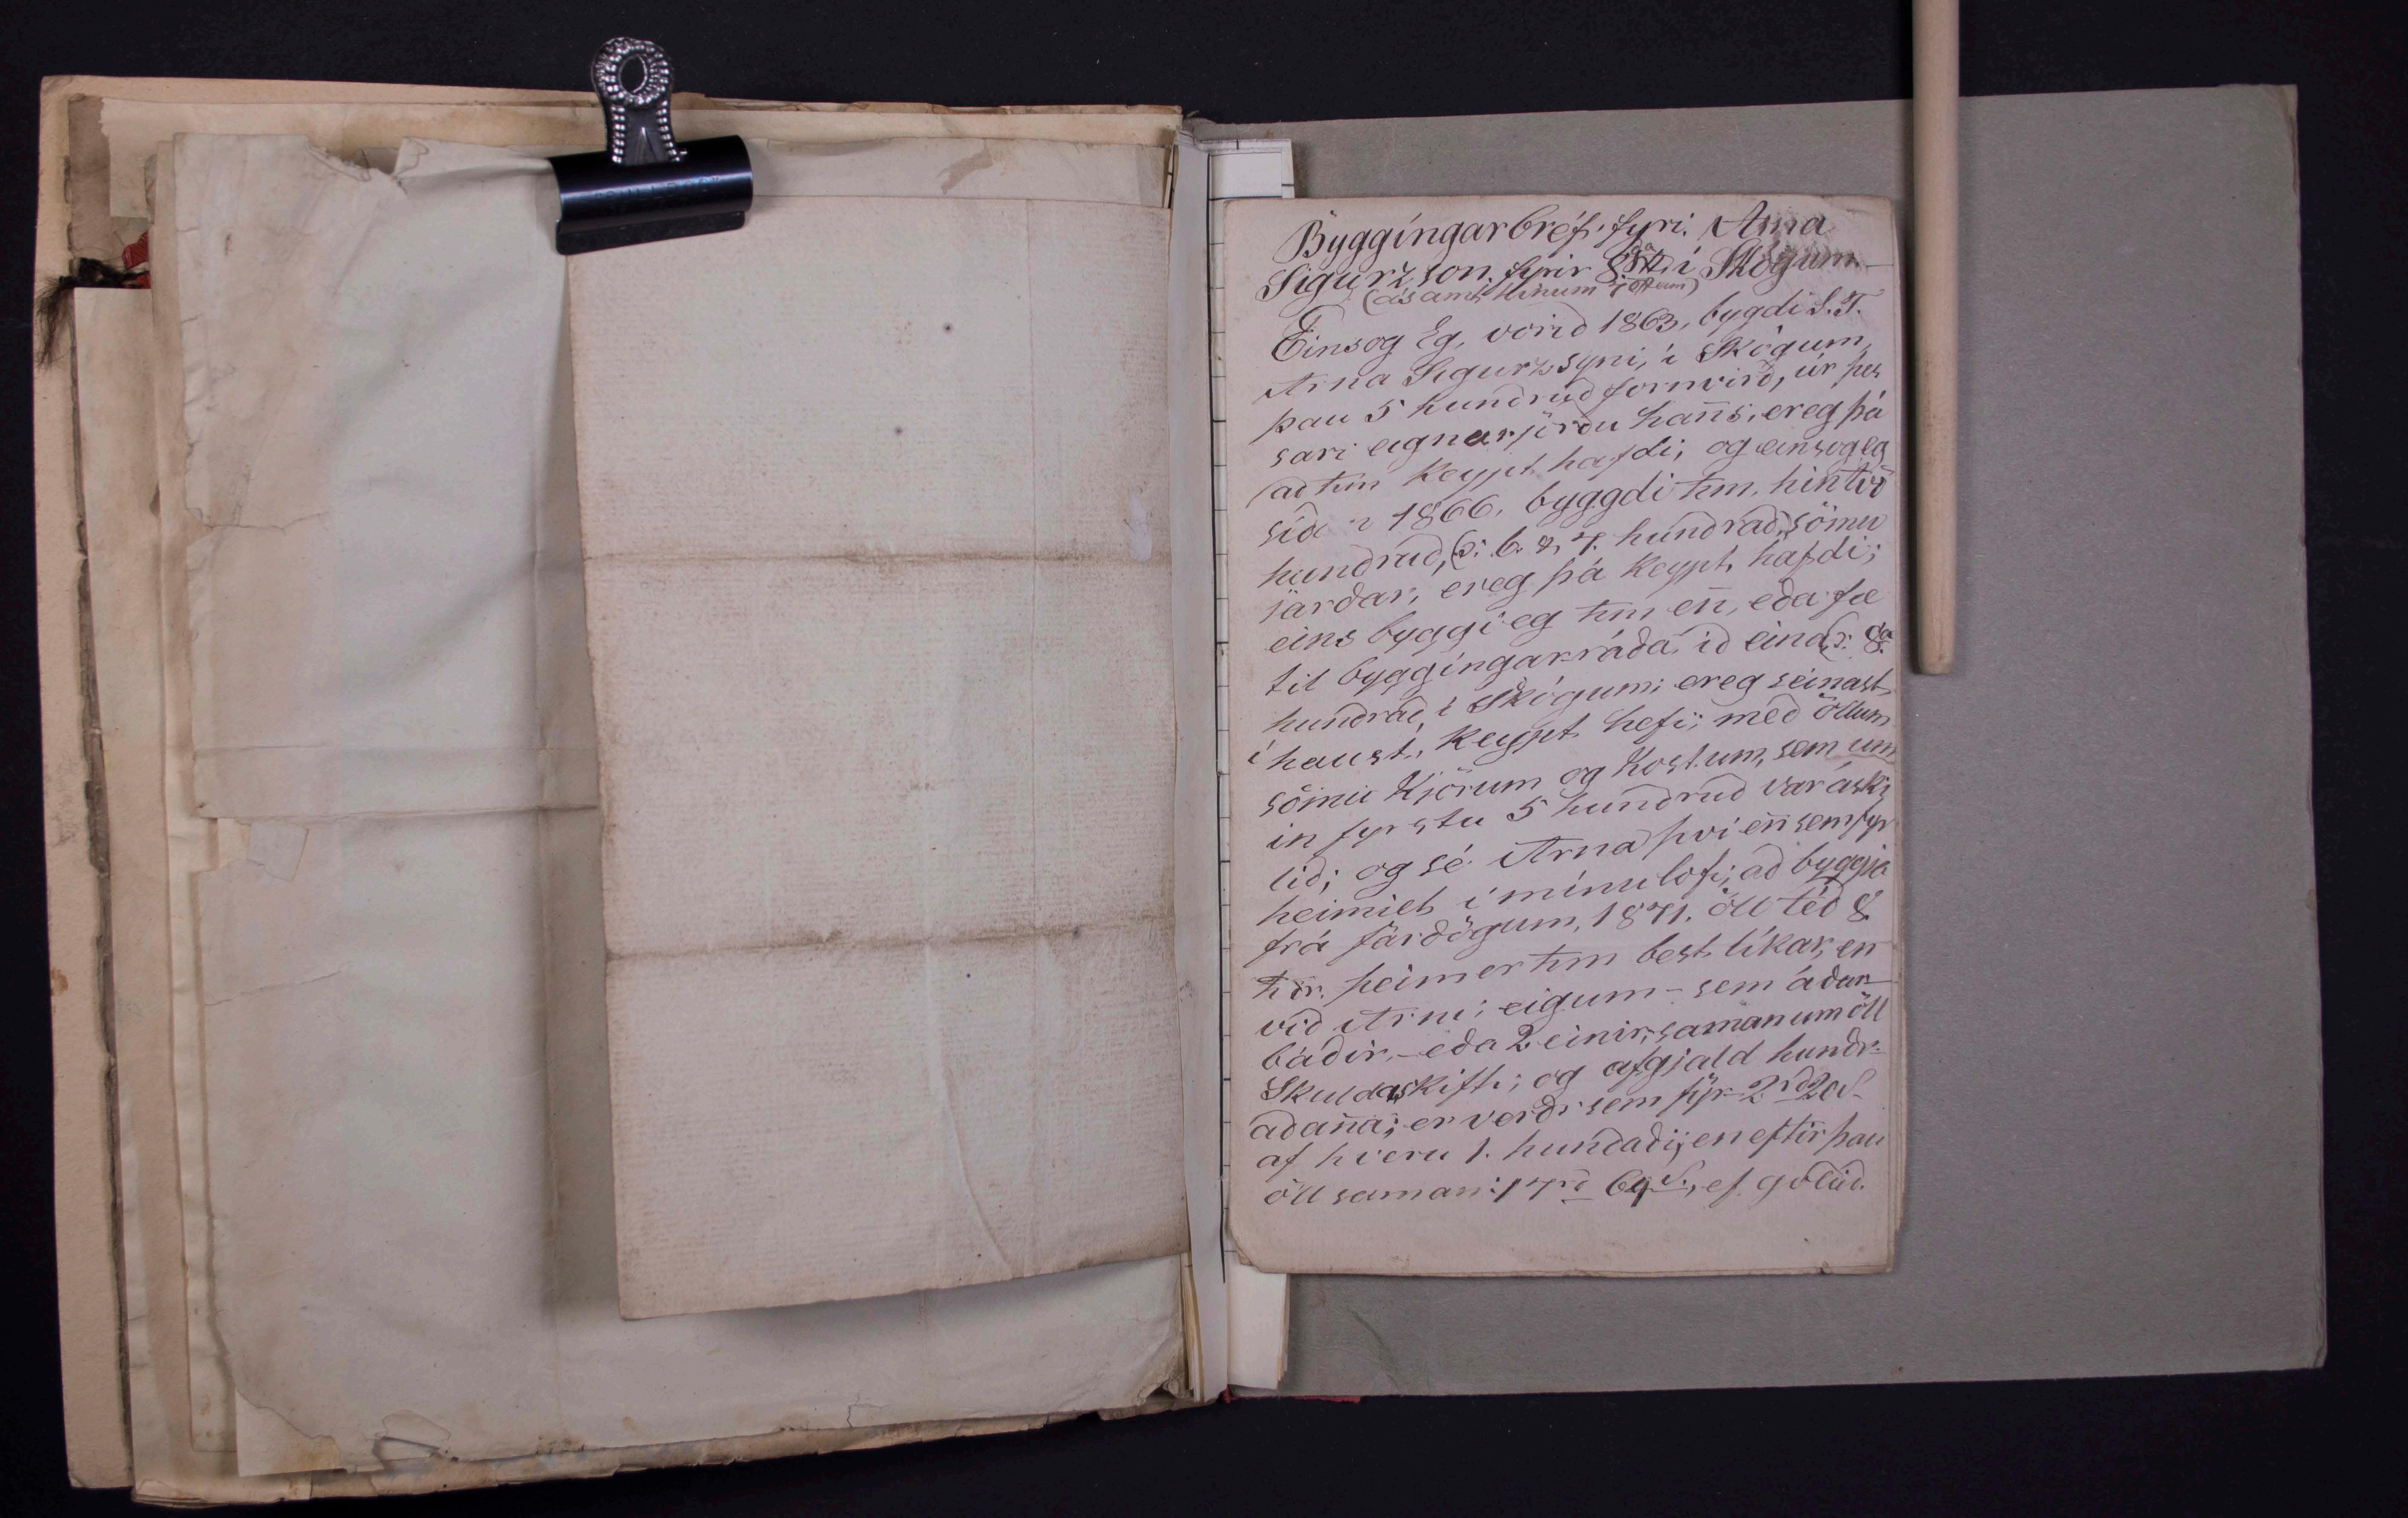 Byggíngarbréf, fyri. Arna
Sigurzson. fyrir 8da í Skógum.
(ásamt hinum 7
Einsog Eg, vorið 1863, bygdi S.T.
Arna Sigurzsyni, í Skógum,
þau 5 hundruð fornvirð, úr þes
sari eignarjörðu hans, ereg þá
að hm keypt hafdi; og einsog eg
síða n 1866. byggdi hm, hin tvö
hundruð, (ɔ: 6. & 7. hundrað) sömu
jarðar, ereg þá keypt hafdi;
eins byggi eg hm eñ, eða fæ
til byggíngarráða ið eina, (ɔ: 8da
hundrað í Skógum; ereg seinast
í haust, keypt hefi; með öllum
sömu Kjörum og Kostum, sem um
in fyrstu 5 hundruð var áski
lið; og sé Arna því eñ sem fyr
heimilt í mínu lofi, að byggja
frá fardögum, 1871. öll téð 8
hdr. þeim er hm best líkar, en
við Arni; eigum - sem áður
báðir, - eða 2 einir, saman um öll
Skuldaskifti; og afgjald hundr-
aðaña; er verðr sem fyr 2rd 20s.
af hveru 1. hundaði; en eftir þau
öll saman: 17rd 64s., ef goldið.